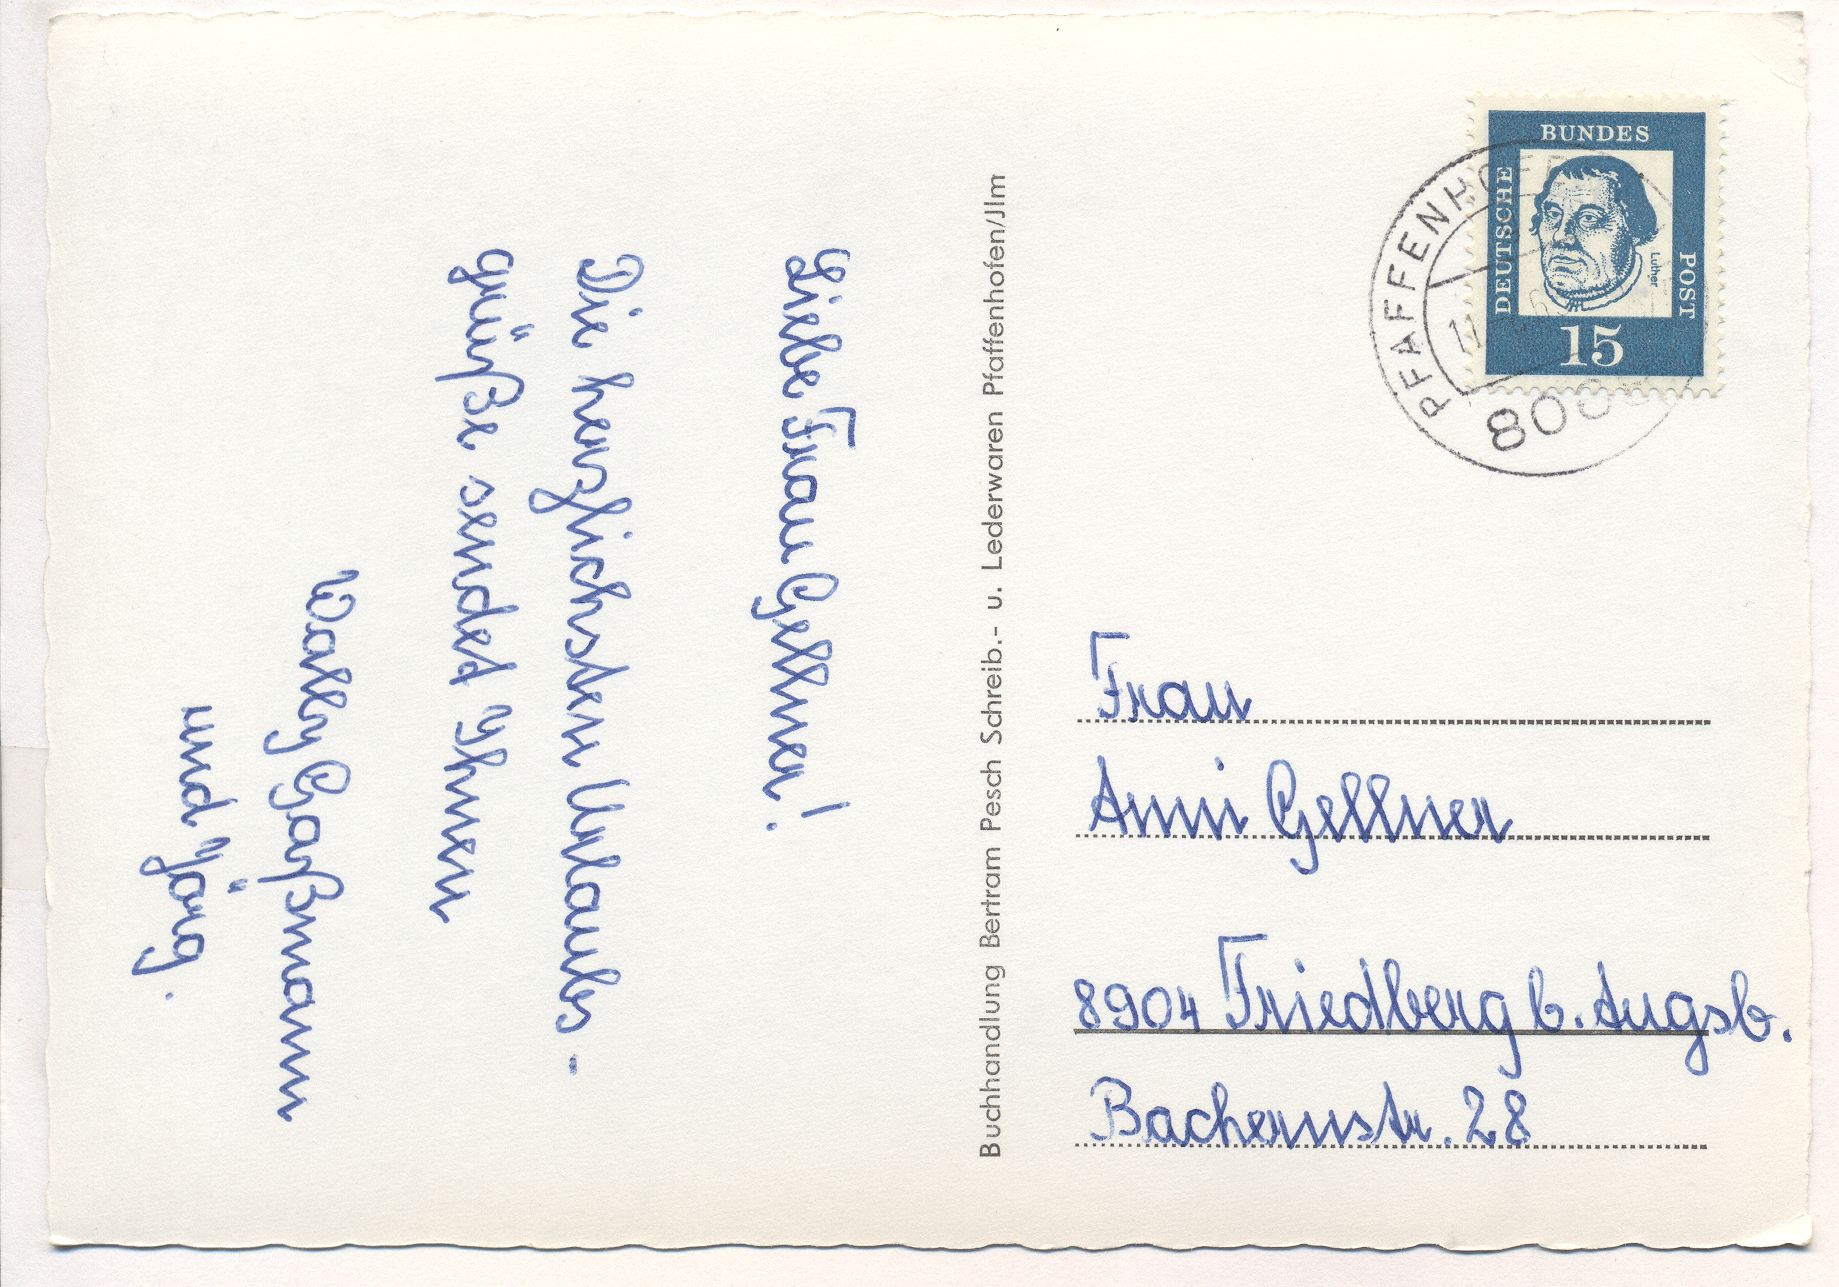 Liebe Frau Gellner!
Die herzlichsten Urlaubs-
grüße sendet Ihnen
Wally Gaßmann
und Jörg.
Buchhandlung Bertram Pesch Schreib.- u. Lederwaren Pfaffenhofen/Jlm
DEUTSCHE
BUNDES
POST
Luther
15
PFAFFENHOFEN
Frau
Anni Gellner
8904 Friedberg b. Augsb.
Bachernstr. 28